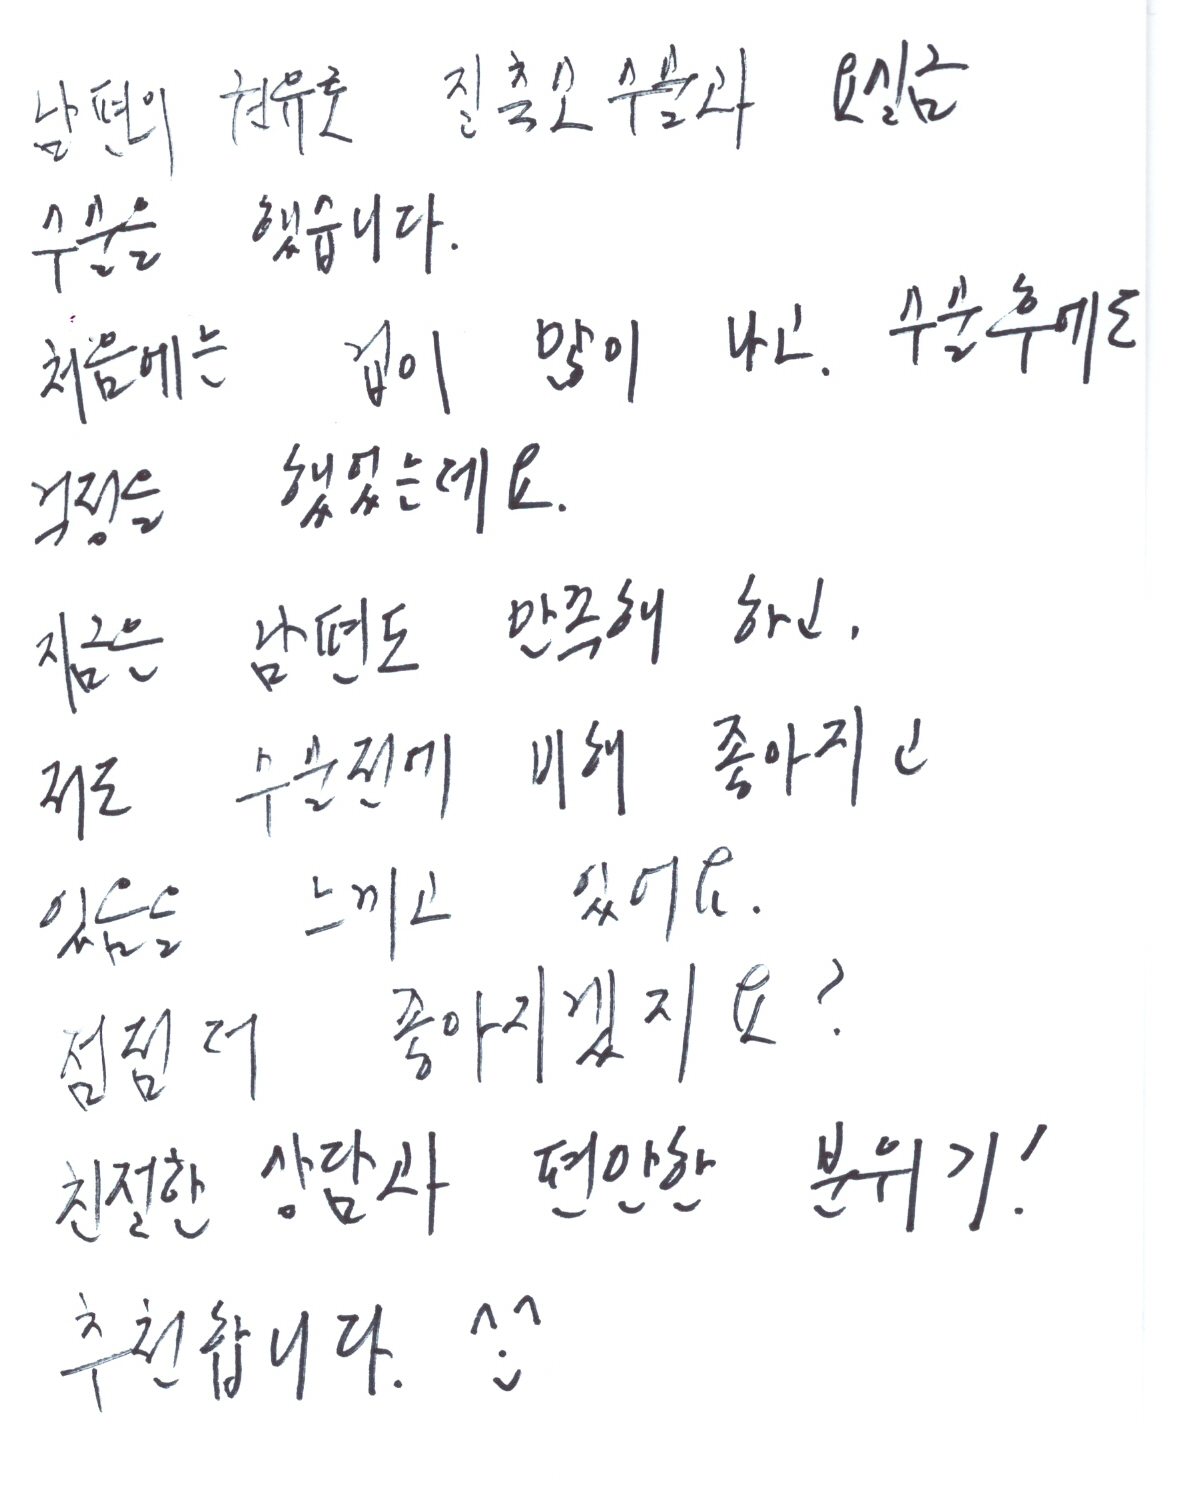 남편의 권유로 질축소수술과 요실금
수술을 했습니다.
처음에는 겁이 많이 나고. 수술후에도
걱정을 했었는데요.
지금은 남편도 만족해 하고,
저도 수술전에 비해 좋아지고
있음을 느끼고 있어요.
점점 더 좋아지겠지요?
친절한 상담과 편안한 분위기!
추천합니다. ^.^